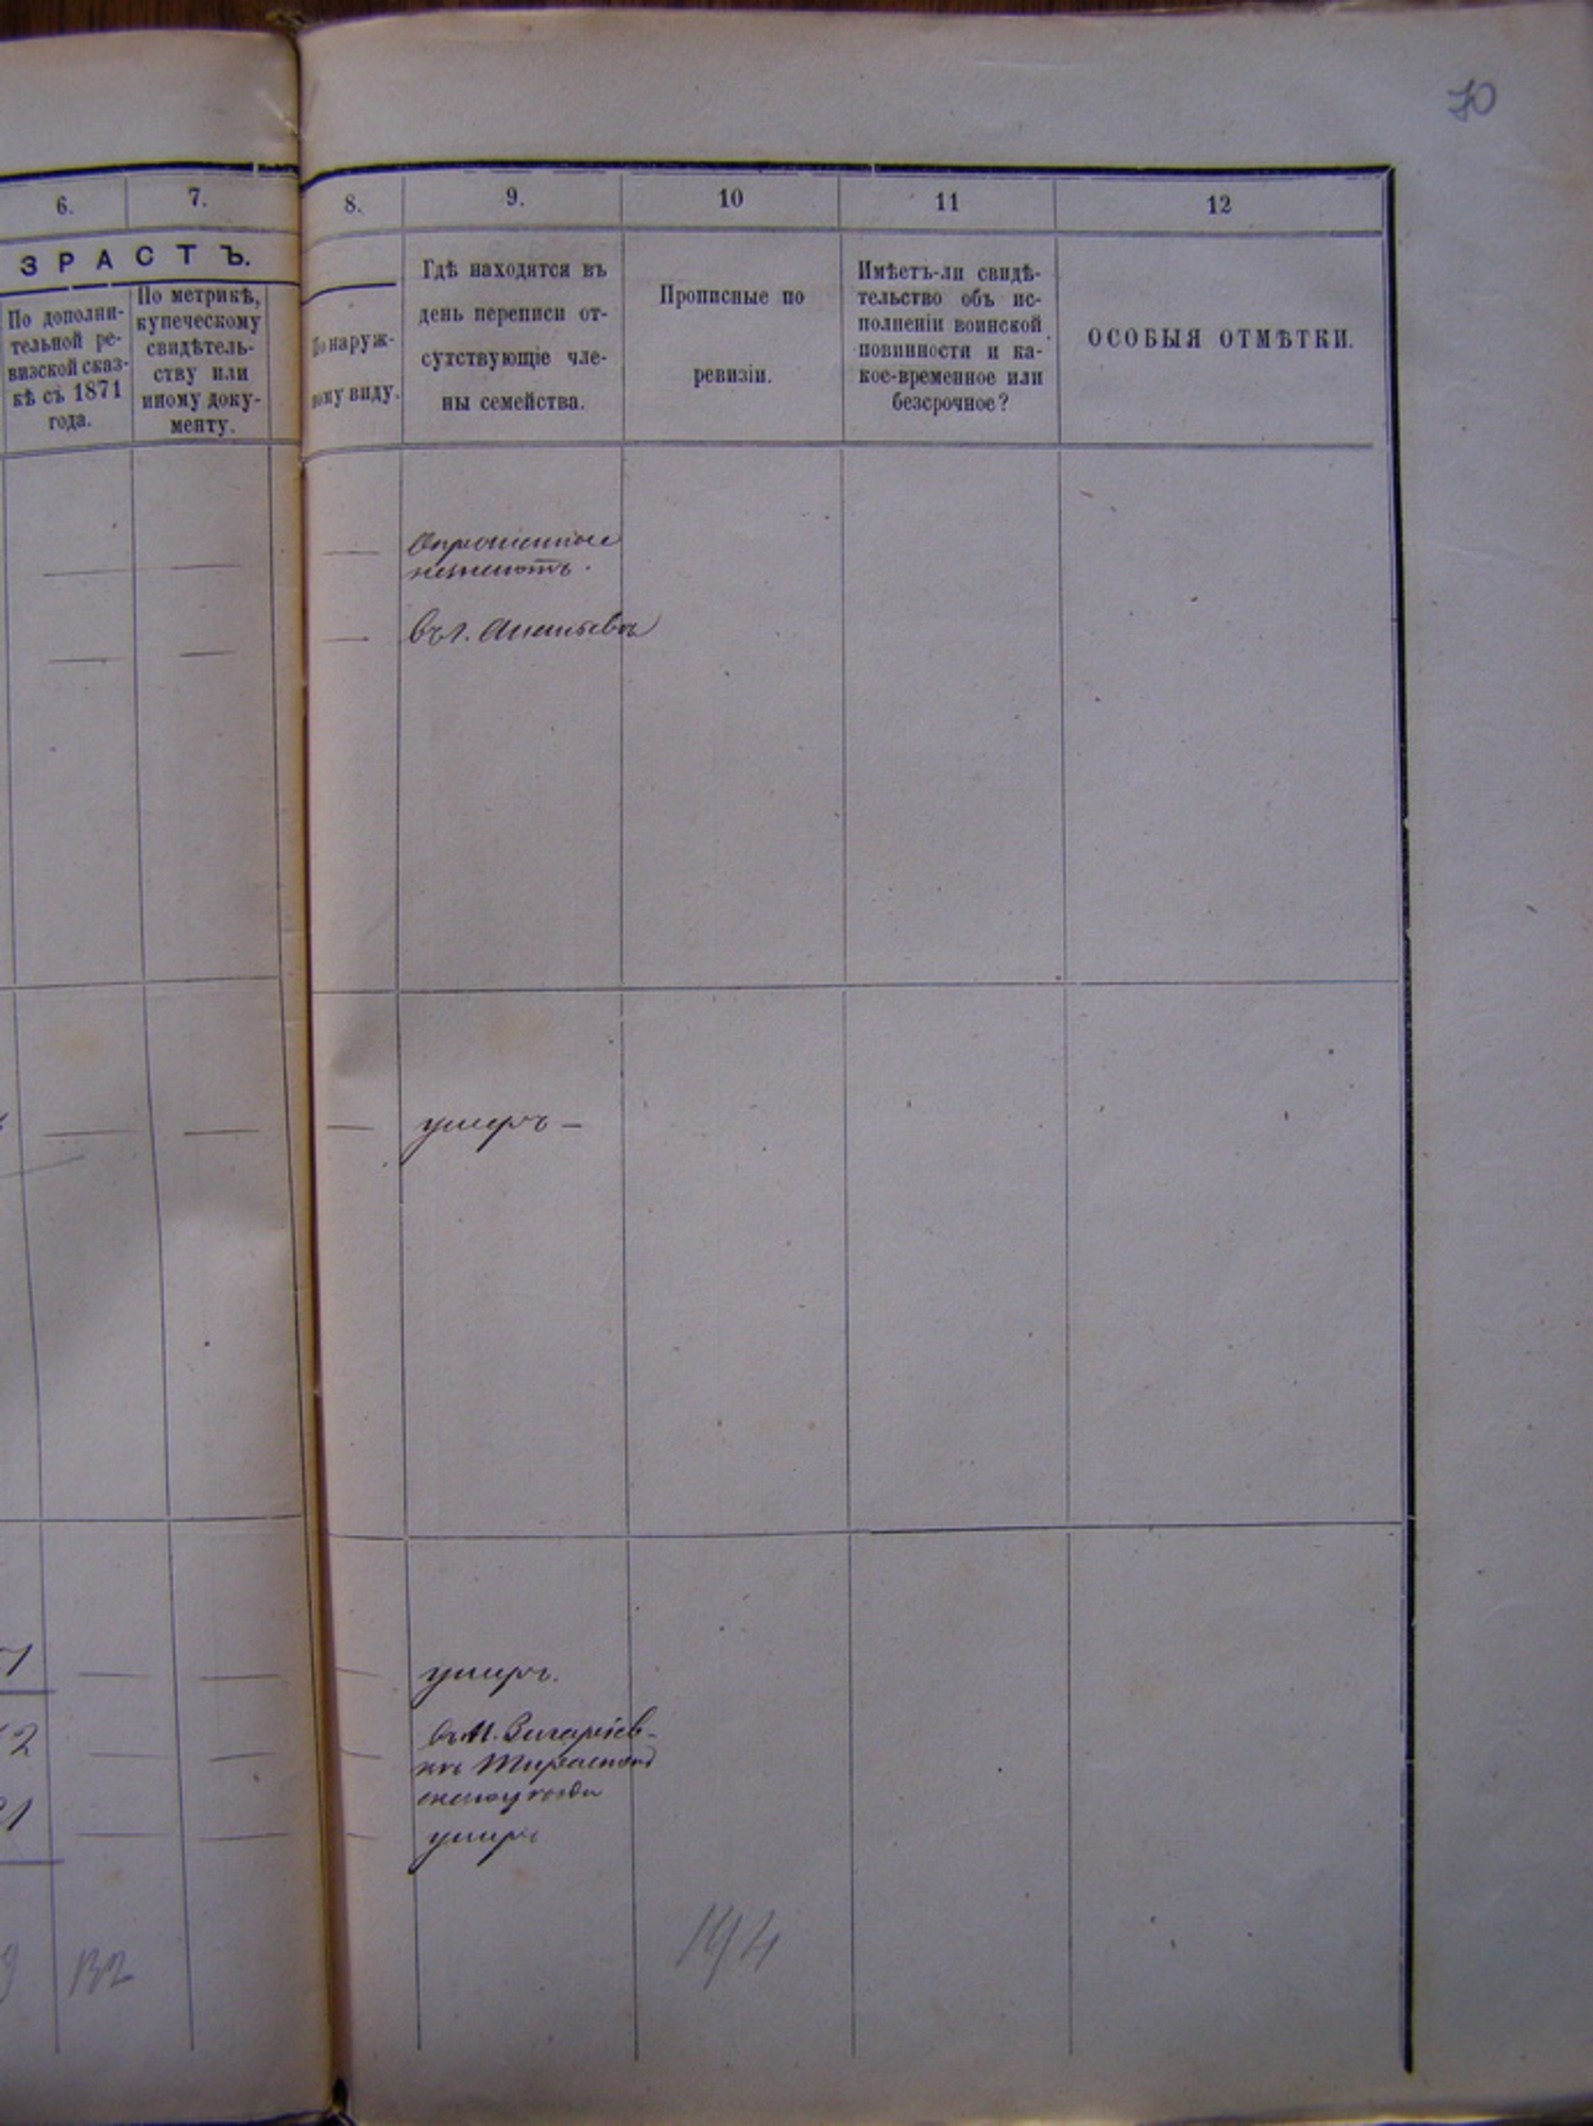 70
6. 7. 8. 9. 10 11 12
ЗРАСТЪ.
По дополни-
тельной ре-
визской сказ-
кѣ съ 1871
года.
По метрикѣ,
купеческому
свидѣтель-
ству или
иному доку-
менту.
По наруж-
ному виду.
Гдѣ находятся въ
день переписи от-
сутствующіе чле-
ны семейства.
Прописные по
ревизіи.
Имѣетъ-ли свидѣ-
тельство объ ис-
полненіи воинской
повинности и ка-
кое-временное или
безсрочное?
ОСОБЫЯ ОТМѢТКИ.
— — —
въ г. Ананьевѣ
— — —
— — — умеръ —
— — — умеръ.
2 — — —
уѣзда
1 — — — умеръ
9 132 194